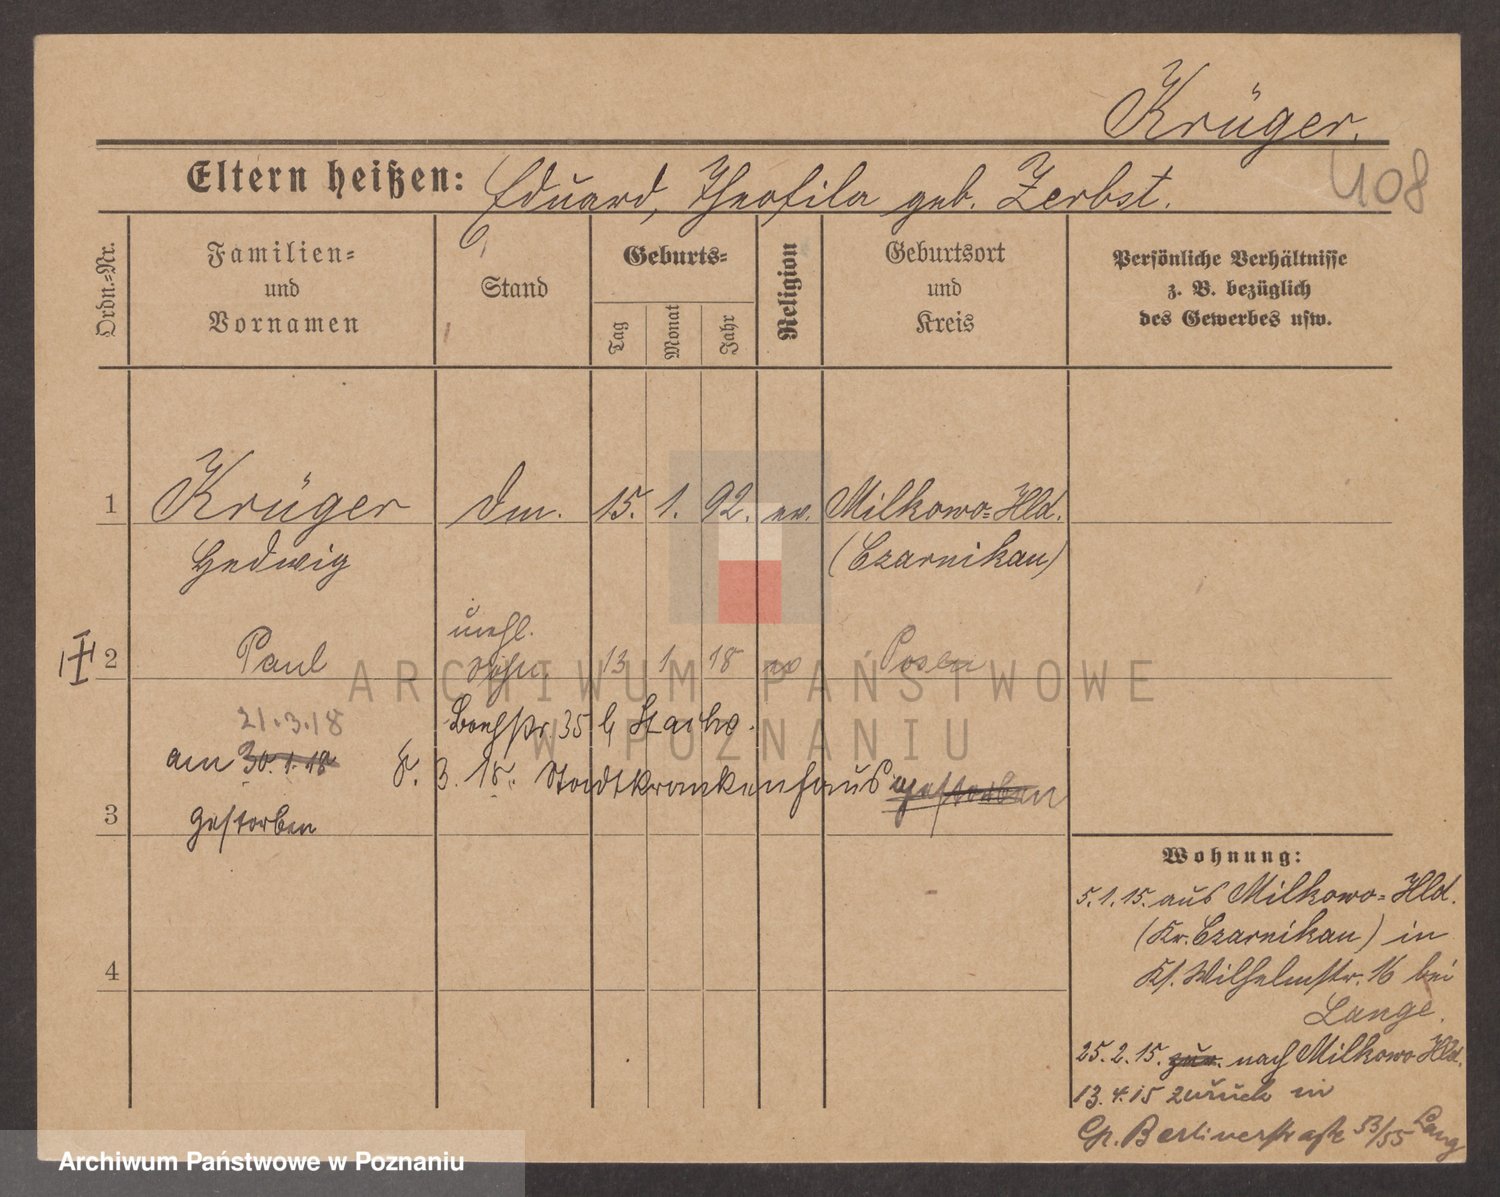 Krüger.
408
Eltern heißen: Eduard, Theofila geb. Zerbst.
Ordn.=Nr.
Familien=
und
Vornamen
Stand
Geburts=
Tag
Monat
Jahr
Religion
Geburtsort
und
Kreis
Persönliche Verhältnisse
z. B. bezüglich
des Gewerbes usw.
1 Krüger Dm. 15. 1. 92. ev. Milkowo=Hld.
Hedwig (Czarnikau)
unehl.
2 Paul Sohn 13 1 18 ev Posen
21.3.18
am 30.1.18
gestorben
35 b Starke.
8. 3. 18. Stadtkrankenhaus gestorben
3
4
Wohnung:
5.1.15. aus Milkowo=Hld.
(Kr. Czarnikau) in
Kl. Wilhelmstr. 16 bei
Lange.
25.2.15. zur. nach Milkowo Hld.
13.4.15 zurück in
Gr. Berlinerstraße 53/55 Lang
ARCHIWUM PAŃSTWOWE
W POZNANIU
Archiwum Państwowe w Poznaniu